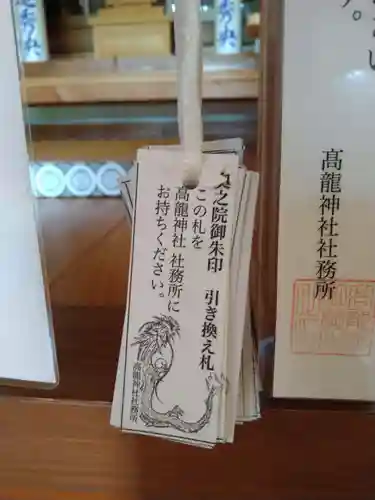 す。
髙龍神社社務所
奥之院御朱印 引き換え札
この札を
髙龍神社 社務所に
お持ちください。
髙龍神社社務所